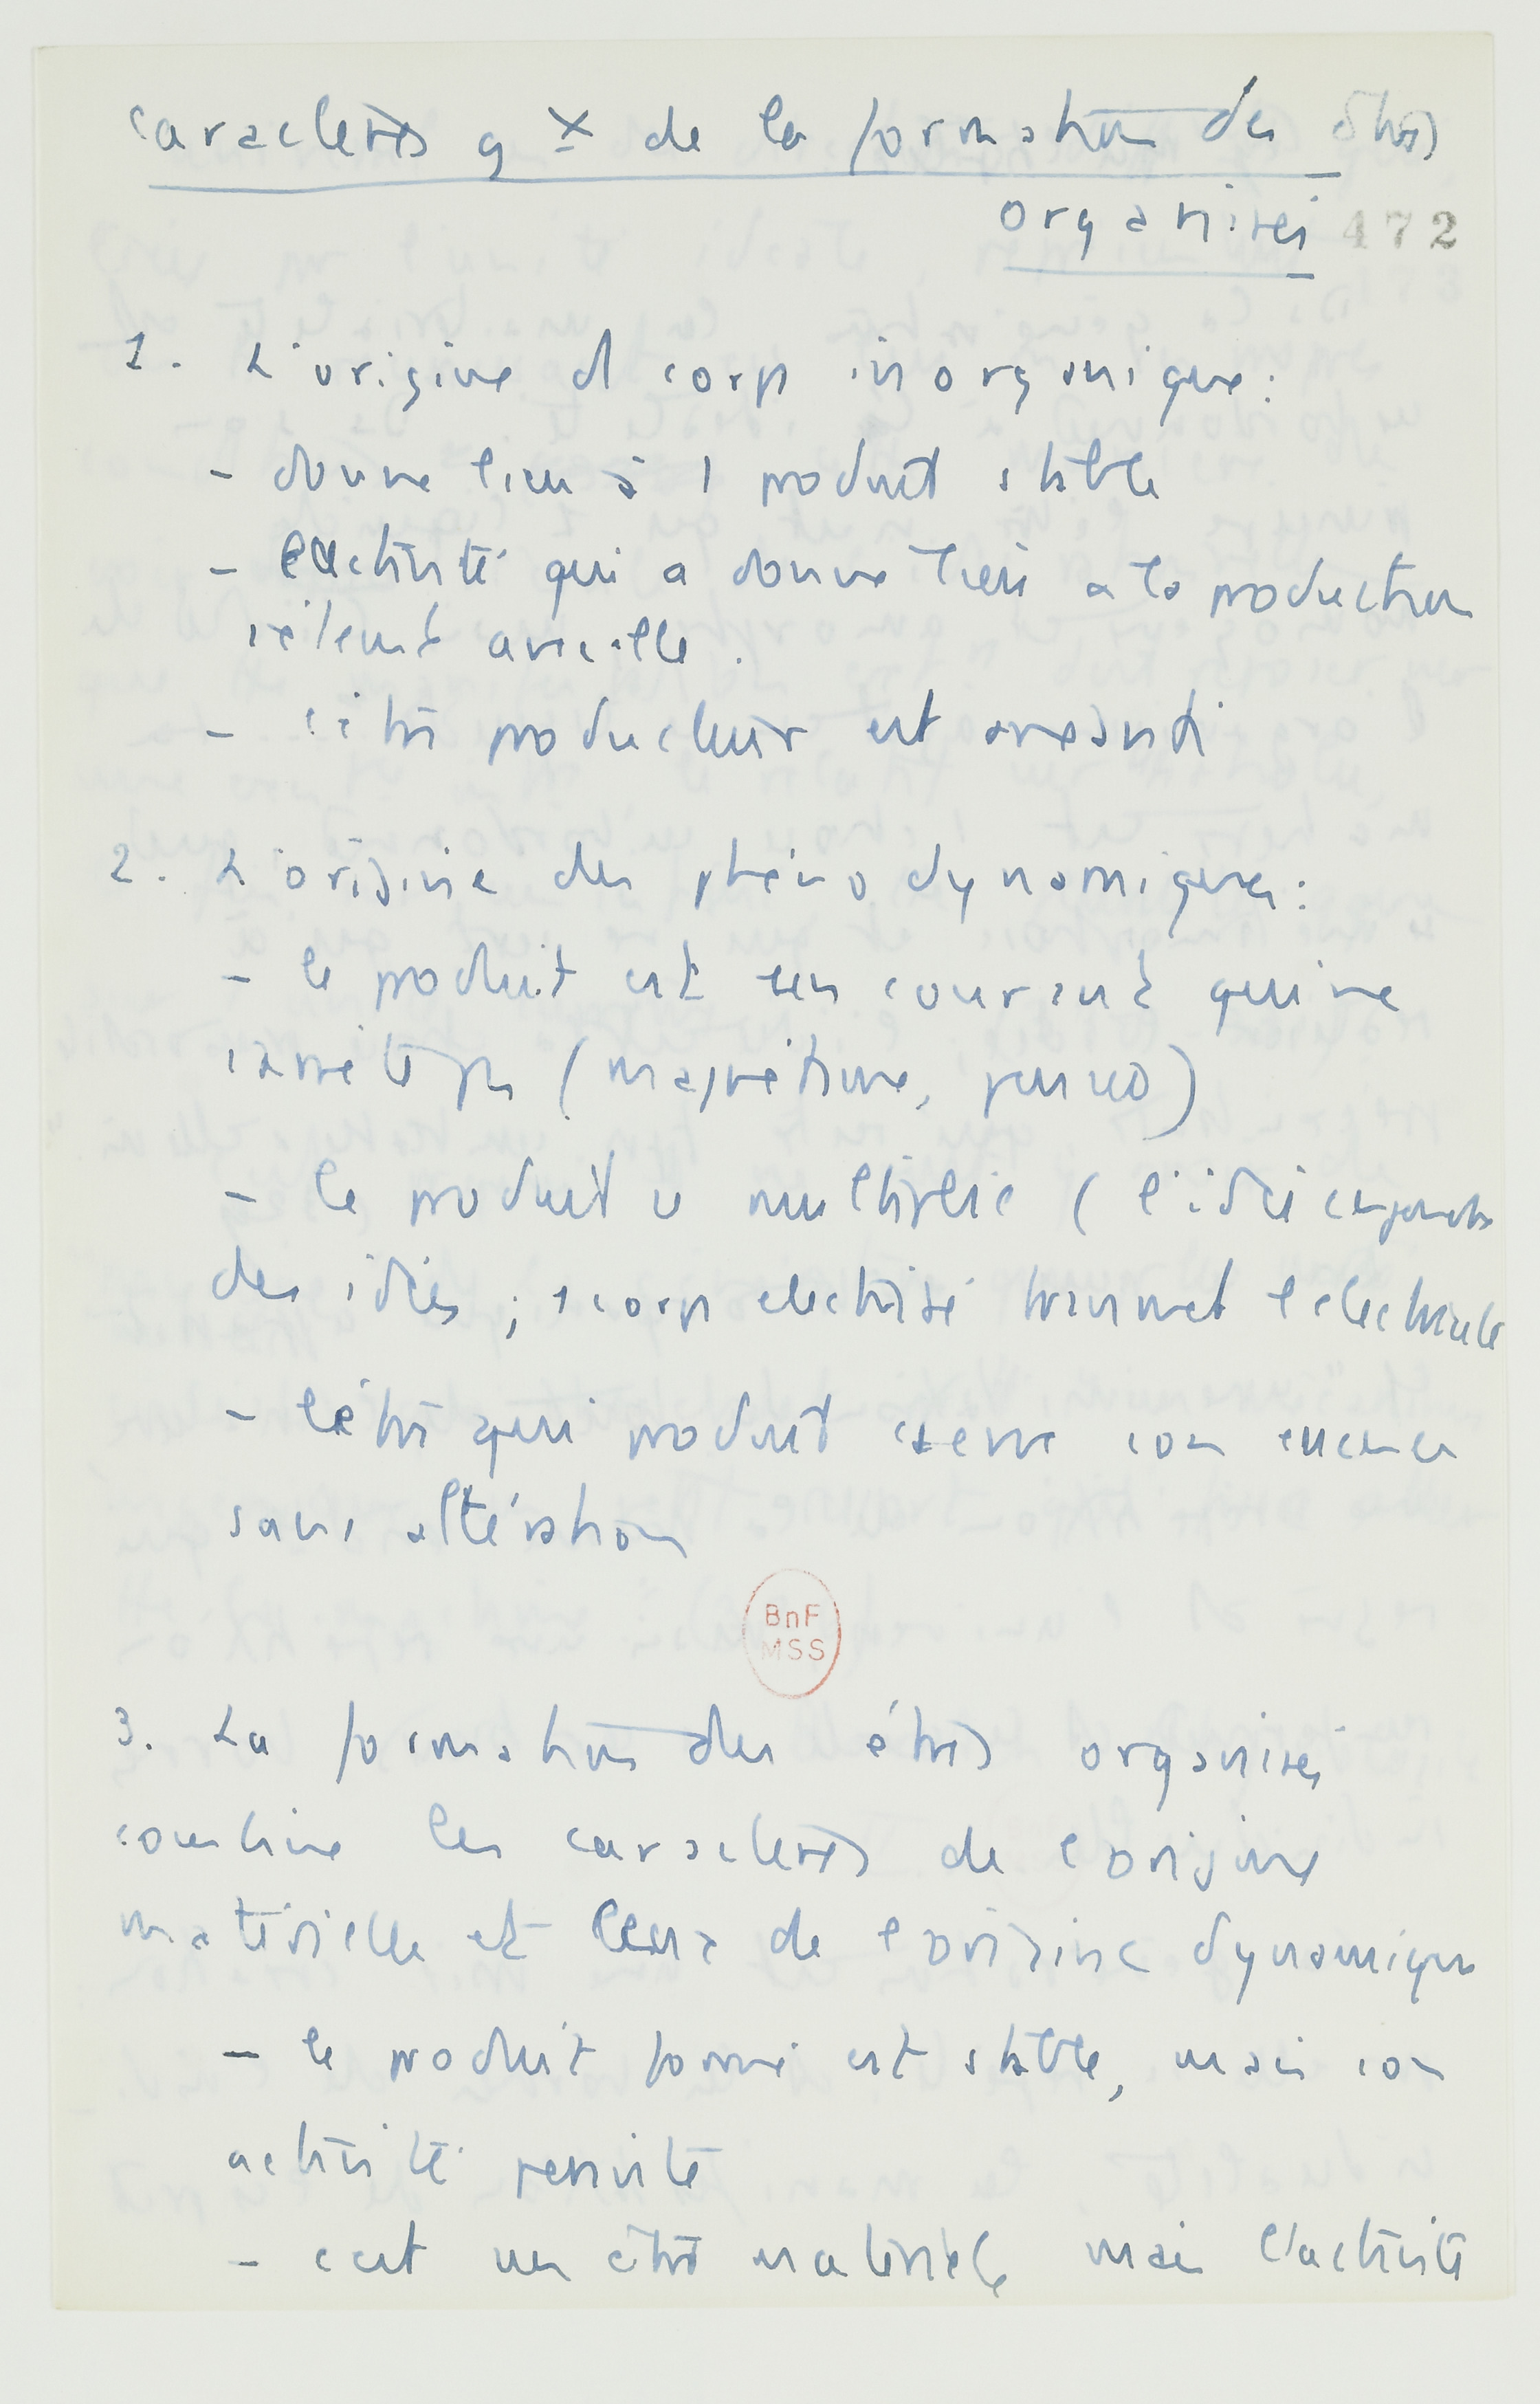 caractères gx de la formation des êtres
organisés
472
1. L'origine d corps inorganique :
- donne lieu à 1 produit stable
- l'activité qui a donné lieu à la production
s'éteint avec elle.
- l'être producteur est anéanti
2. L'origine des phéno dynamiques :
- le produit est un courant qui ne
s'arrête pas (magnétisme, pensée)
- le produit se multiplie (l'idée engendre
des idées ; 1 corps électrisé transmet l'électricité
- l'être qui produit conserve son essence
sans altération
BnF
MSS
3. La formation des êtres organisés
combine les caractères de l'origine
matérielle et ceux de l'origine dynamique
- le produit formé est stable, mais son
activité persiste
- c'est un être matériel mais l'activité